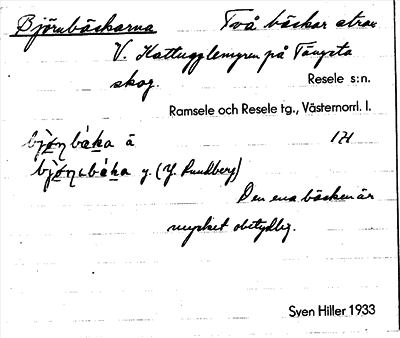 Björnbäckarna Två bäckar strax
V. Kattugglemyren på Tängsta
skog. Resele s:n.
Ramsele och Resele tg., Västernorrl. l.
bjò̱ṇ bàka ä 1H
bjò̱ṇ bàka y. (Y. Sundberg)
Den ena bäcken är
mycket obetydlig.
Sven Hiller 1933